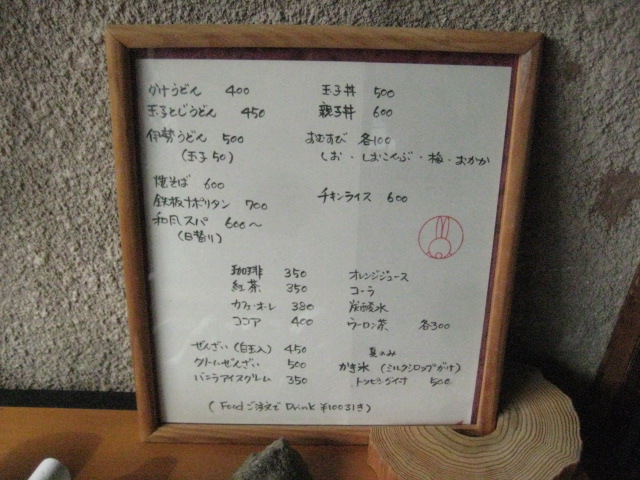 かけうどん 400
玉子とじうどん 450
伊勢うどん 500
(玉子 50)
玉子丼 500
親子丼 600
おむすび 各100
しお・しおこんぶ・梅・おかか
焼そば 600
鉄板ナポリタン 700
和風スパ 600〜
(日替り)
チキンライス 600
珈琲 350
紅茶 350
カフェ・オ・レ 380
ココア 400
オレンジジュース
コーラ
炭酸水
ウーロン茶 各300
ぜんざい(白玉入) 450
クリームぜんざい 500
バニラアイスクリーム 350
夏のみ
かき氷(ミルクシロップがけ)
トッピング付 500
(Foodご注文でDrink ¥100引き)